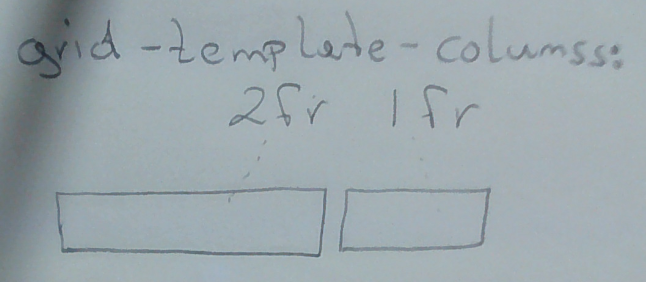 grid-template-columss:
2fr 1fr